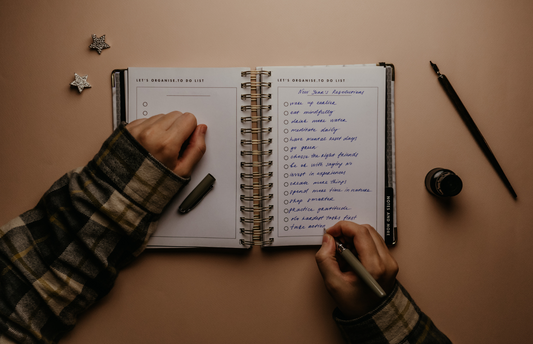 LET'S ORGANISE. TO DO LIST
LET'S ORGANISE. TO DO LIST
New Year's Resolutions
wake up earlier
eat mindfully
drink more water
meditate daily
have number rest days
go green
choose the right friends
be ok with saying no
invest in experiences
create more things
spend more time in nature
shop smarter
practice gratitude
do hardest tasks first
take action
NOTES AND IDEAS